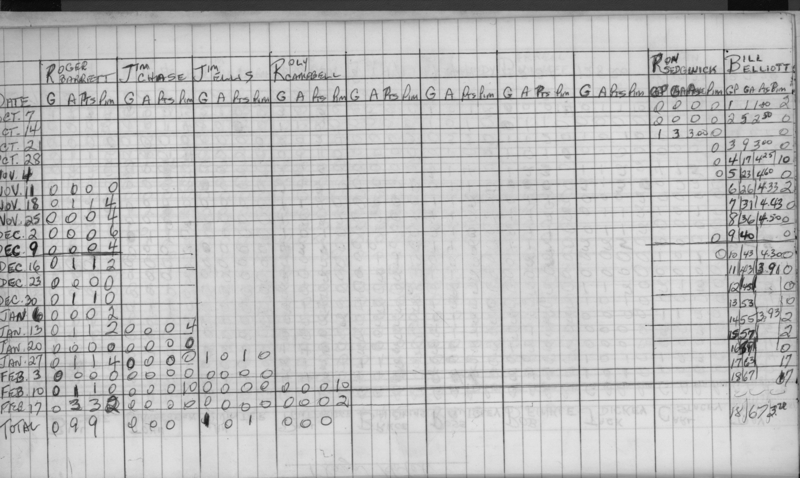 ROGER BARRETT JIM CHASE JIM ELLIS ROLY CAMPBELL RON SEDGWICK BILL ELLIOTT
DATE G A Pts Pim G A Pts Pim G A Pts Pim G A Pts Pim G A Pts Pim G A Pts Pim G A Pts Pim G A Pts Pim GP GA Ave Pim GP GA Ave Pim
OCT. 7 0 0 0 0 1 1 1.00 2
OCT. 14 0 0 0 0 2 5 2.50 0
OCT. 21 1 3 3.00 0 0
OCT. 28 0 3 9 3.00 0
NOV. 4 0 4 17 4.25 10
0 5 23 4.60 0
NOV. 11 0 0 0 0 6 26 4.33 2
NOV. 18 0 1 1 4 7 31 4.43 0
NOV. 25 0 0 0 4 8 36 4.50 0
DEC. 2 0 0 0 6 0 9 40 0
DEC. 9 0 0 0 4 0 10 43 4.30 0
DEC. 16 0 1 1 2 11 43 3.91 0
DEC. 23 0 0 0 0 12 0
DEC. 30 0 1 1 0 13 53 0
JAN. 6 0 0 0 2 14 55 3.93 2
JAN. 13 0 1 1 2 0 0 0 4 15 57 2
JAN. 20 0 0 0 0 0 0 0 0 0
JAN. 27 0 1 1 4 0 0 0 0 1 0 1 0 17 63 17
FEB. 3 0 0 0 0 0 0 0 0 0 0 0 0 18 67
FEB. 10 0 1 1 0 0 0 0 10 0 0 0 0 0 0 0 10
FEB. 17 0 3 3 2 0 0 0 0 0 0 0 0 0 0 0 2 18 67
TOTAL 0 9 9 0 0 0 1 0 1 0 0 0